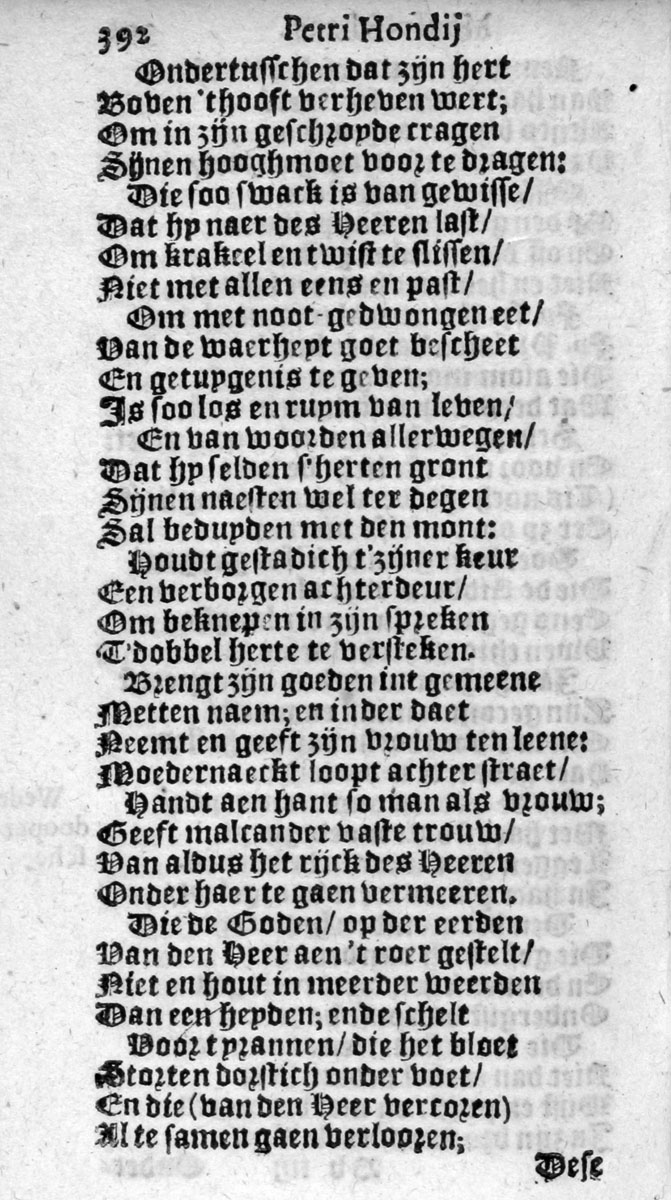 392 Petri Hondij
Ondertusschen dat zijn hert
Boven 'thooft verheven wert;
Om in zijn geschroyde cragen
Sijnen hooghmoet voor te dragen:
Die soo swack is van gewisse/
Dat hy naer des Heeren last/
Om krakeel en twist te slissen/
Niet met allen eens en past/
Om met noot-gedwongen eet/
Van de waerheyt goet bescheet
En getuygenis te geven;
Is soo los en ruym van leven/
En van woorden allerwegen/
Dat hy selden s'herten gront
Sijnen naesten wel ter degen
Sal beduyden met den mont:
Houdt gestadich t'zijner keur
Een verborgen achterdeur/
Om beknepen in zijn spreken
T'dobbel herte te versteken.
Brengt zijn goeden int gemeene
Metten naem; en inder daet
Neemt en geeft zijn vrouw ten leene:
Moedernaeckt loopt achter straet/
Handt aen hant so man als vrouw;
Geeft malcander vaste trouw/
Van aldus het rijck des Heeren
Onder haer te gaen vermeeren.
Die de Goden/ op der eerden
Van den Heer aen 't roer gestelt/
Niet en hout in meerder weerden
Dan een heyden; ende schelt
Voor tyrannen/ die het bloet
Storten dorstich onder voet/
En die (van den Heer vercoren)
Al te samen gaen verlooren;
Dese